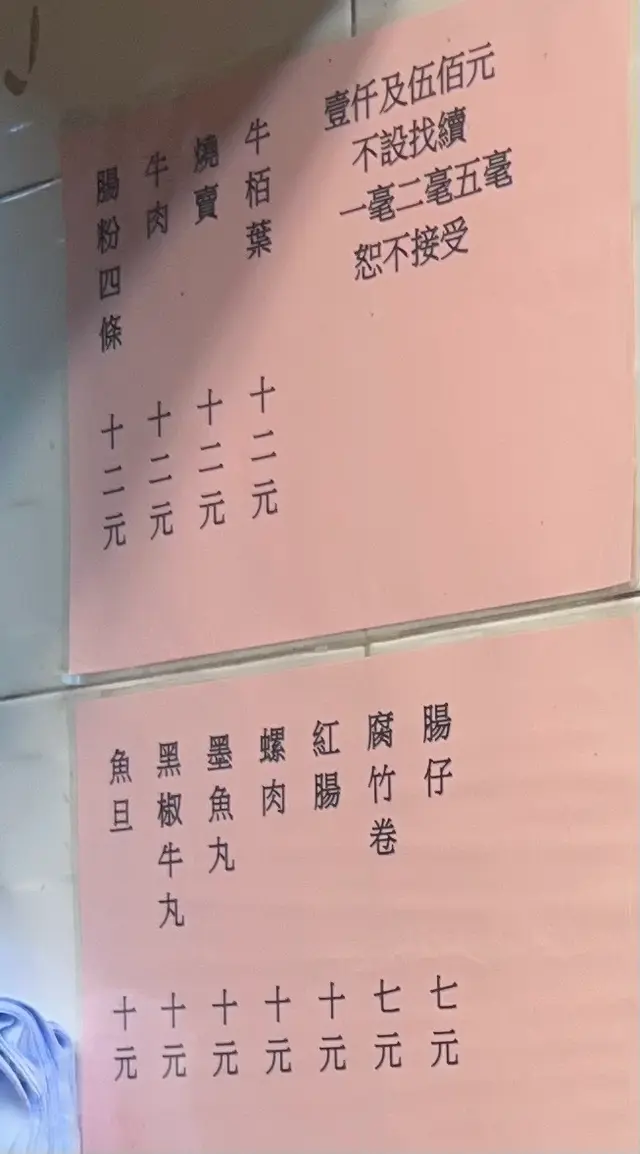 壹仟及伍佰元
不設找續
一毫二毫五毫
恕不接受
牛栢葉 十二元
燒賣 十二元
牛肉 十二元
腸粉四條 十二元
腸仔 七元
腐竹卷 七元
紅腸 十元
螺肉 十元
墨魚丸 十元
黑椒牛丸 十元
魚旦 十元